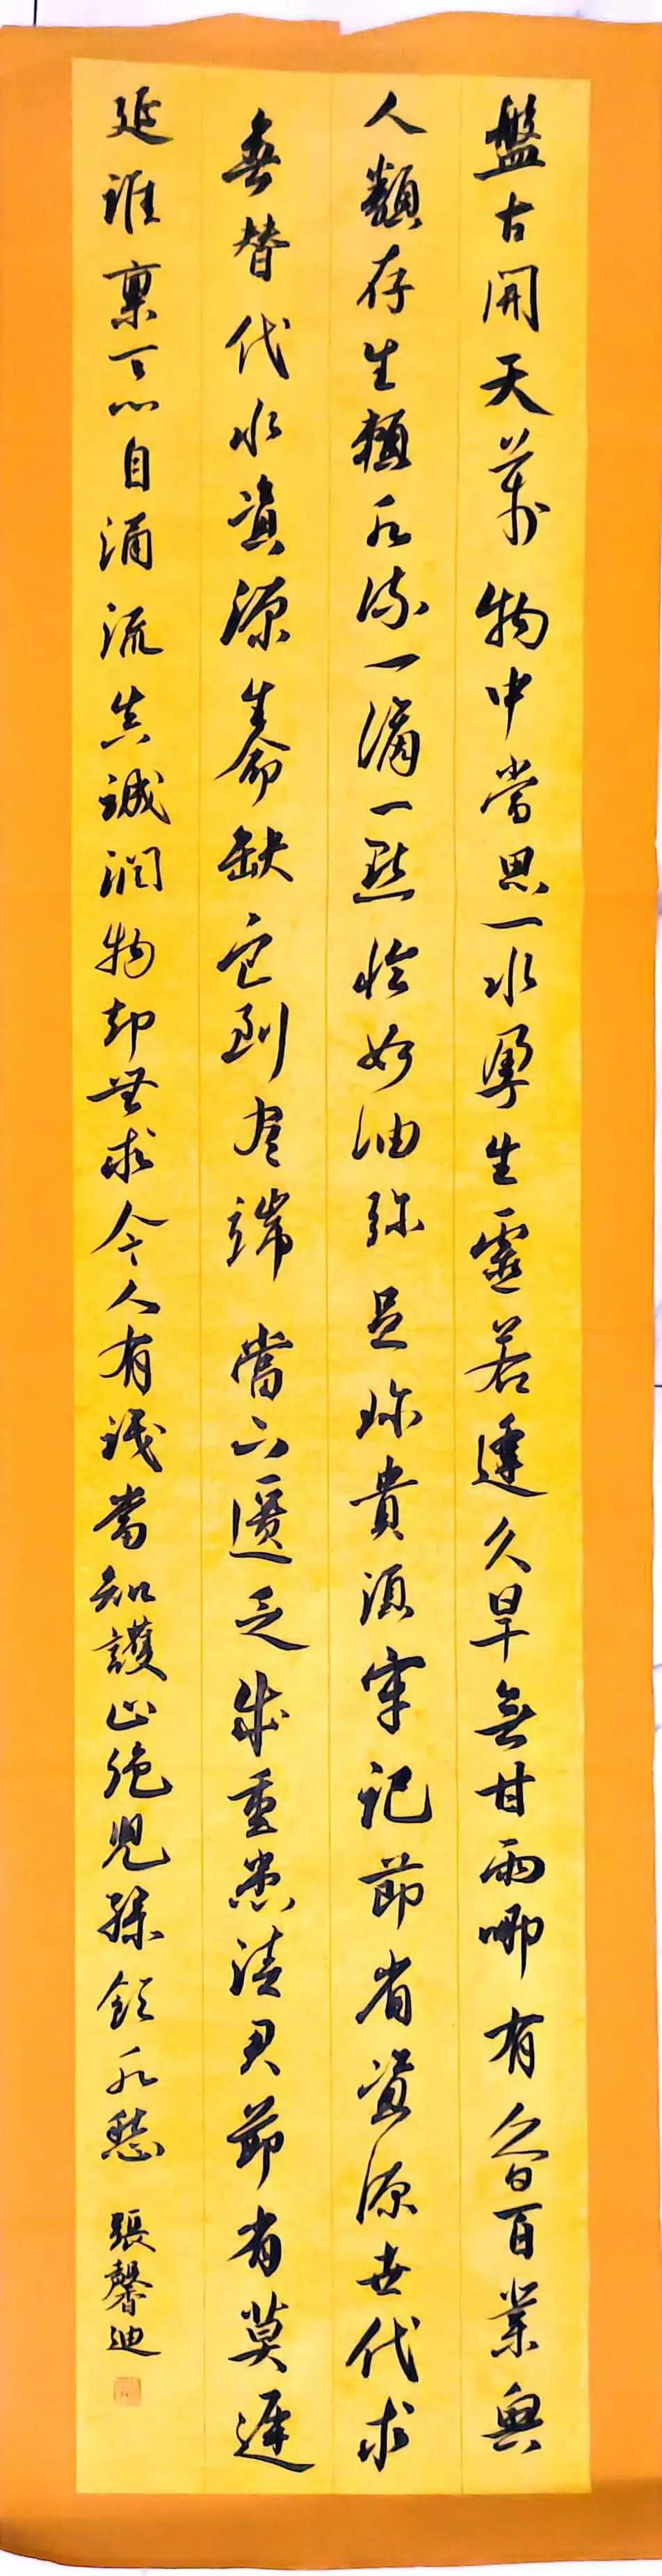 盤古開天萬物中當思一水孕生靈若逢久旱無甘雨哪有今日百業興
人類存生賴水流一滴一點恰如油弥足珍貴須牢記節省資源世代求
無替代水資源生命缺它到盡端當下匱乏成重患請君節省莫遲
延誰稟天心自涌流真誠潤物却無求今人有識當知護山絶兒孫飲水愁 張馨迪